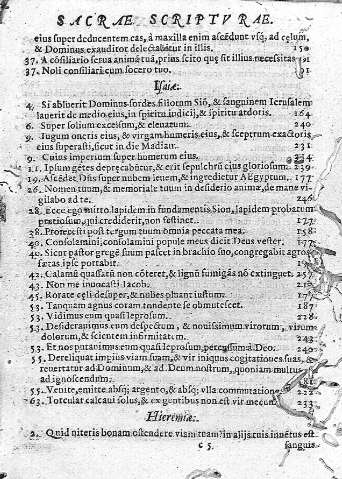 SACRAE SCRIPTVRAE.
eius super deducentem eas, à maxilla enim ascēdunt vsq; ad cęlum,
& Dominus exauditor delectabitur in illis. 150
37. A cōsiliario serua animā tuā, prius scito quę sit illius necessitas
37. Noli consiliari cum socero tuo. 191
Isaiæ.
4. Si abluerit Dominus sordes filiorum Siō, & sanguinem Ierusalem
lauerit de medio eius, in spiritu iudicij, & spiritu ardoris. 164
6. Super solium excelsum, & eleuatum. 240
9. Iugum oneris eius, & virgam humeris eius, & sceptrum exactoris
eius superasti, sicut in die Madian. 231
9. Cuius imperium super humerum eius. 234
11. Ipsum gētes deprecabūtur, & erit sepulchrū eius gloriosum. 239
19. Ascēdet Dn̄s super nubem leuem, & ingredietur AEgyptum. 177
26. Nomen tuum, & memoriale tuum in desiderio animæ, de mane vi-
gilabo ad te. 246
28. Ecce ego mitto lapidem in fundamentis Sion, lapidem probatum
pretiosum, qui crediderit, non festinet. 177
38. Proiecisti post tergum tuum omnia peccata mea. 158
40. Consolamini, consolamini popule meus dicit Deus vester. 177
40. Sicut pastor gregē suum pascet in brachio suo, congregabit agnos
fœtas ipse portabit.
42. Calamū quassatū non cōteret, & lignū fumigās nō extinguet. 257
43. Non me inuocasti Iacob. 212
45. Rorate cęli desuper, & nubes pluant iustum. 174
53. Tanquam agnus coram tondente se obmutescet. 187
53. Vidimus eum quasi leprosum. 228
53. Desiderauimus eum despectum, & nouissimum virorum, virum
dolorum, & scientem infirmitatem. 243
53. Et nos putauimus eum quasi leprosum, percussum à Deo. 246
55. Derelinquat impius viam suam, & vir iniquus cogitationes suas, &
reuertatur ad Dominum, & ad Deum nostrum, quoniam multus
ad ignoscendum.
55. Venite, emite absq; argento, & absq; vlla commutatione
63. Torcular calcaui solus, & ex gentibus non est vir mecum. 233
Hieremiæ.
2. Quid niteris bonam ostendere viam tuam? in alijs tuis inuētus est
C 5. sanguis